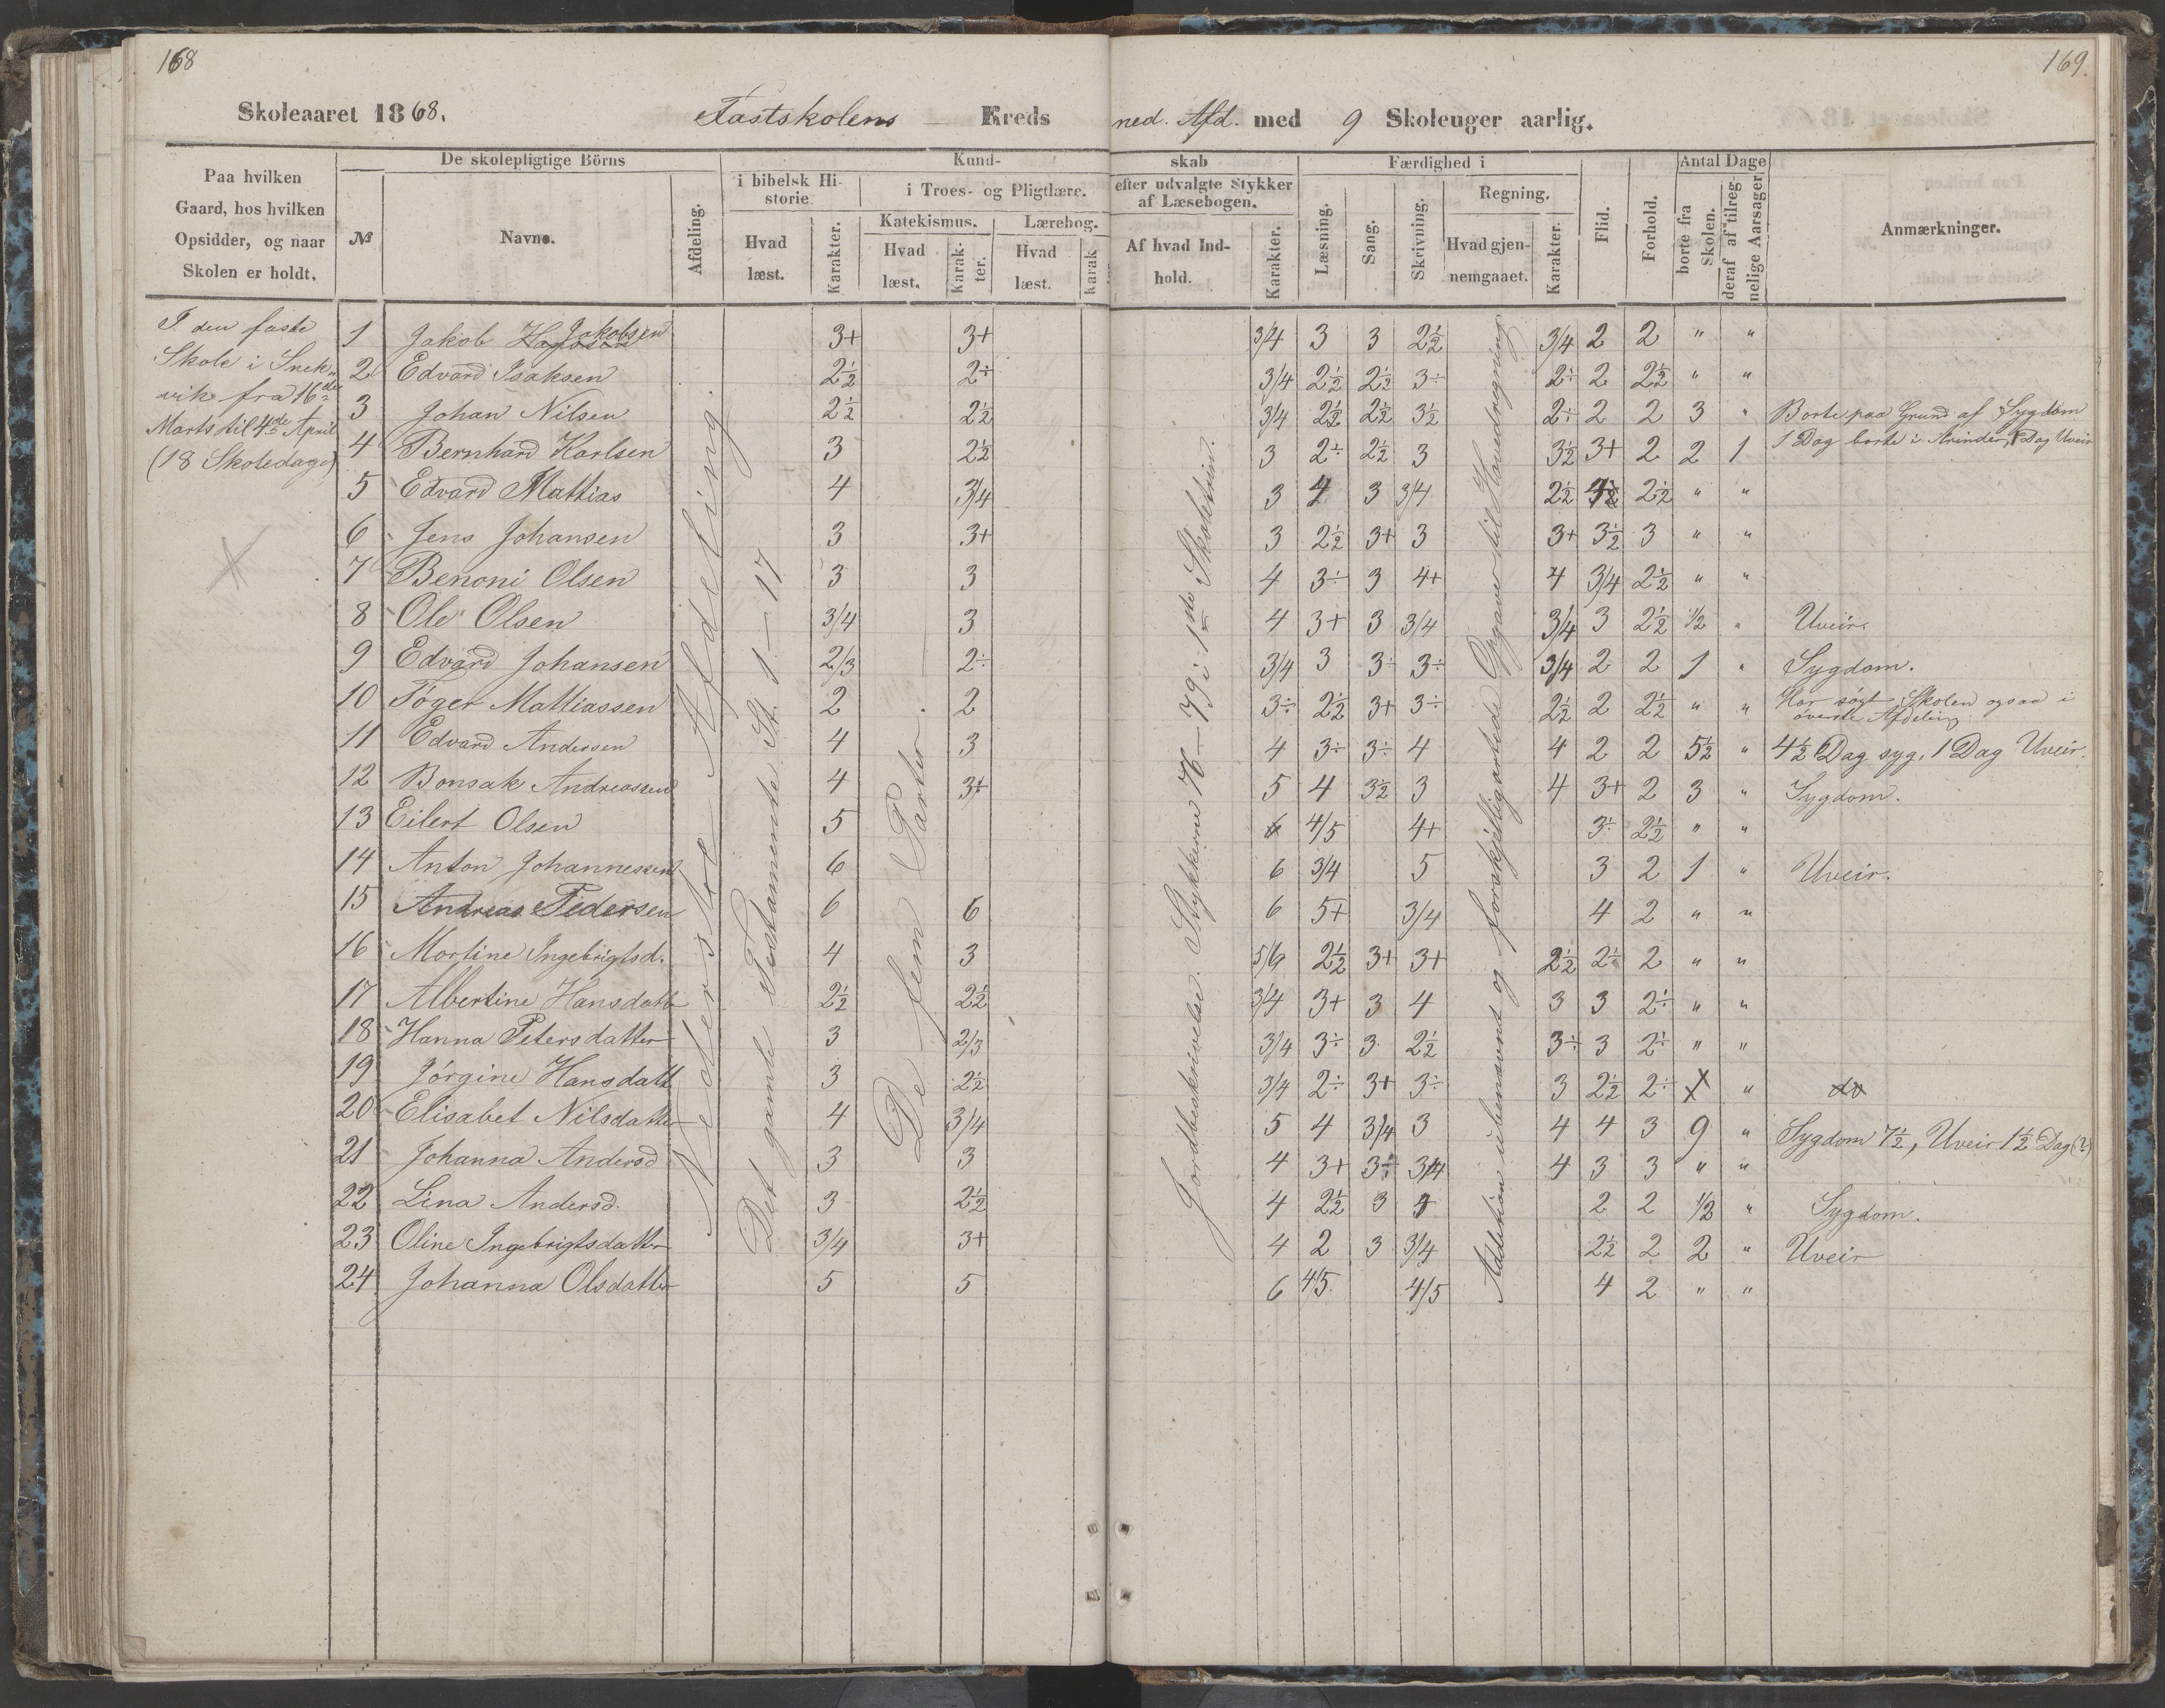 168
169.
Skoleaaret 1868. Fastskolens Kreds ned. Afd. med 9 Skoleuger aarlig.
Paa hvilken Gaard, hos hvilken Opsidder, og naar Skolen er holdt.
De skolepligtige Börns
№
Navne.
Afdeling.
Kund-
skab
i bibelsk Hi-
storie.
Hvad læst.
Karakter.
i Troes- og Pligtlære.
Katekismus.
Hvad læst.
Karak-
ter.
Lærebog.
Hvad læst.
Karak
efter udvalgte Stykker
af Læsebogen.
Af hvad Ind-
hold.
Karakter.
Færdighed i
Læsning.
Sang.
Skrivning.
Regning.
Hvad gjen-
nemgaaet.
Karakter.
Flid.
Forhold.
Antal Dage
borte fra
Skolen.
deraf af tilreg-
nelige Aarsager
Anmærkninger.
I den faste
Skole i Snek-
vik fra 16de
Marts til 4de April
(18 Skoledage)
Nederste Afdeling.
Det gamle Testamente St. 1–17
De fem Parter.
Jordbeskrivelse. Stykkerne 76–79 i 1ste Skoletrin.
Addition i ubenævnt og forskjelligartede Opgaver til Hovedregning
1 Jakob Jakobsen 3+ 3+ 3/4 3 3 2½ 3/4 2 2 " "
2 Edvard Isaksen 2½ 2÷ 3/4 2½ 2½ 3÷ 2÷ 2 2½ " "
3 Johan Nilsen 2½ 2½ 3/4 2½ 2½ 3½ 2÷ 2 2 3 " Borte paa Grund af Sygdom
4 Bernhard Karlsen 3 2½ 3 2÷ 2½ 3 3½ 3+ 2 2 1 1 Dag borte i Ærinder, 1 Dag Uveir
5 Edvard Mattias 4 3/4 3 4 3 3/4 2½ 2½ " "
6 Jens Johansen 3 3+ 3 2½ 3+ 3 3+ 3½ 3 " "
7 Benoni Olsen 3 3 4 3÷ 3 4+ 4 3/4 2½ " "
8 Ole Olsen 3/4 3 4 3+ 3 3/4 3/4 3 2½ 1/2 " Uveir.
9 Edvard Johansen 2/3 2÷ 3/4 3 3÷ 3÷ 3/4 2 2 1 " Sygdom.
10 Töger Mattiassen 2 2 3÷ 2½ 3+ 3÷ 2½ 2 2½ " " Har sögt Skolen ogsaa i
överste Afdeling
11 Edvard Andersen 4 3 4 3÷ 3÷ 4 4 2 2 5½ " 4½ Dag syg, 1 Dag Uveir.
12 Bonsak Andreassen 4 3+ 5 4 3½ 3 4 3+ 2 3 " Sygdom.
13 Eilert Olsen 5 6 4/5 4+ 3÷ 2½ " "
14 Anton Johannessen 6 6 3/4 5 3 2 1 " Uveir.
15 Andreas Pedersen 6 6 6 5+ 3/4 4 2 " "
16 Martine Ingebrigtsd. 4 3 5/6 2½ 3+ 3+ 2½ 2÷ 2 " "
17 Albertine Hansdatter 2½ 2½ 3/4 3+ 3 4 3 3 2÷ " "
18 Hanna Petersdatter 3 2/3 3/4 3÷ 3 2½ 3÷ 3 2÷ " "
19 Jörgine Hansdatt 3 2½ 3/4 2÷ 3+ 3÷ 3 2½ 2÷ " do
20 Elisabet Nilsdatter 4 3/4 5 4 3/4 3 4 4 3 9 " Sygdom 7½, Uveir 1½ Dag (?)
21 Johanna Andersd 3 3 4 3+ 3÷ 3/4 4 3 3 " "
22 Lina Andersd. 3 2½ 4 2½ 3 4 2 2 1/2 " Sygdom.
23 Oline Ingebrigtsdatter 3/4 3+ 4 2 3 3/4 2½ 2 2 " Uveir
24 Johanna Olsdatter 5 5 6 4/5 4/5 4 2 " "